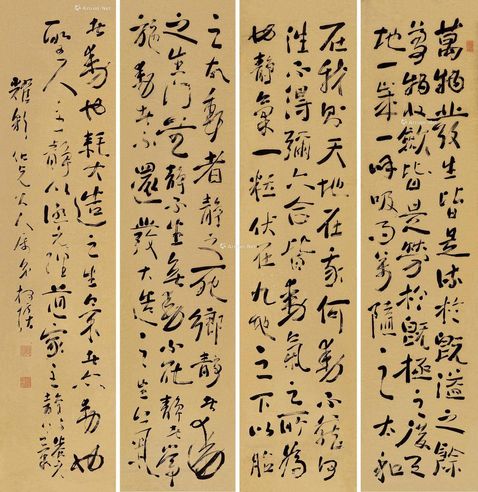 萬物發生皆是流於既溢之餘
萬物收斂皆是勞於既極之後天
地一歲一呼吸而萬物隨之太和
在我則天地在我何動不臧何
往不得彌六合皆動氣之所為
也靜氣一粒伏在九地之下以胎
之故動者靜之死鄉靜者動
之生門無靜不生無動不死靜者常
施動者不還發大造之生氣
者動也耗大造之生氣者亦動也
聖人主靜以涵元理道家主靜以養元氣
仁兄大人屬